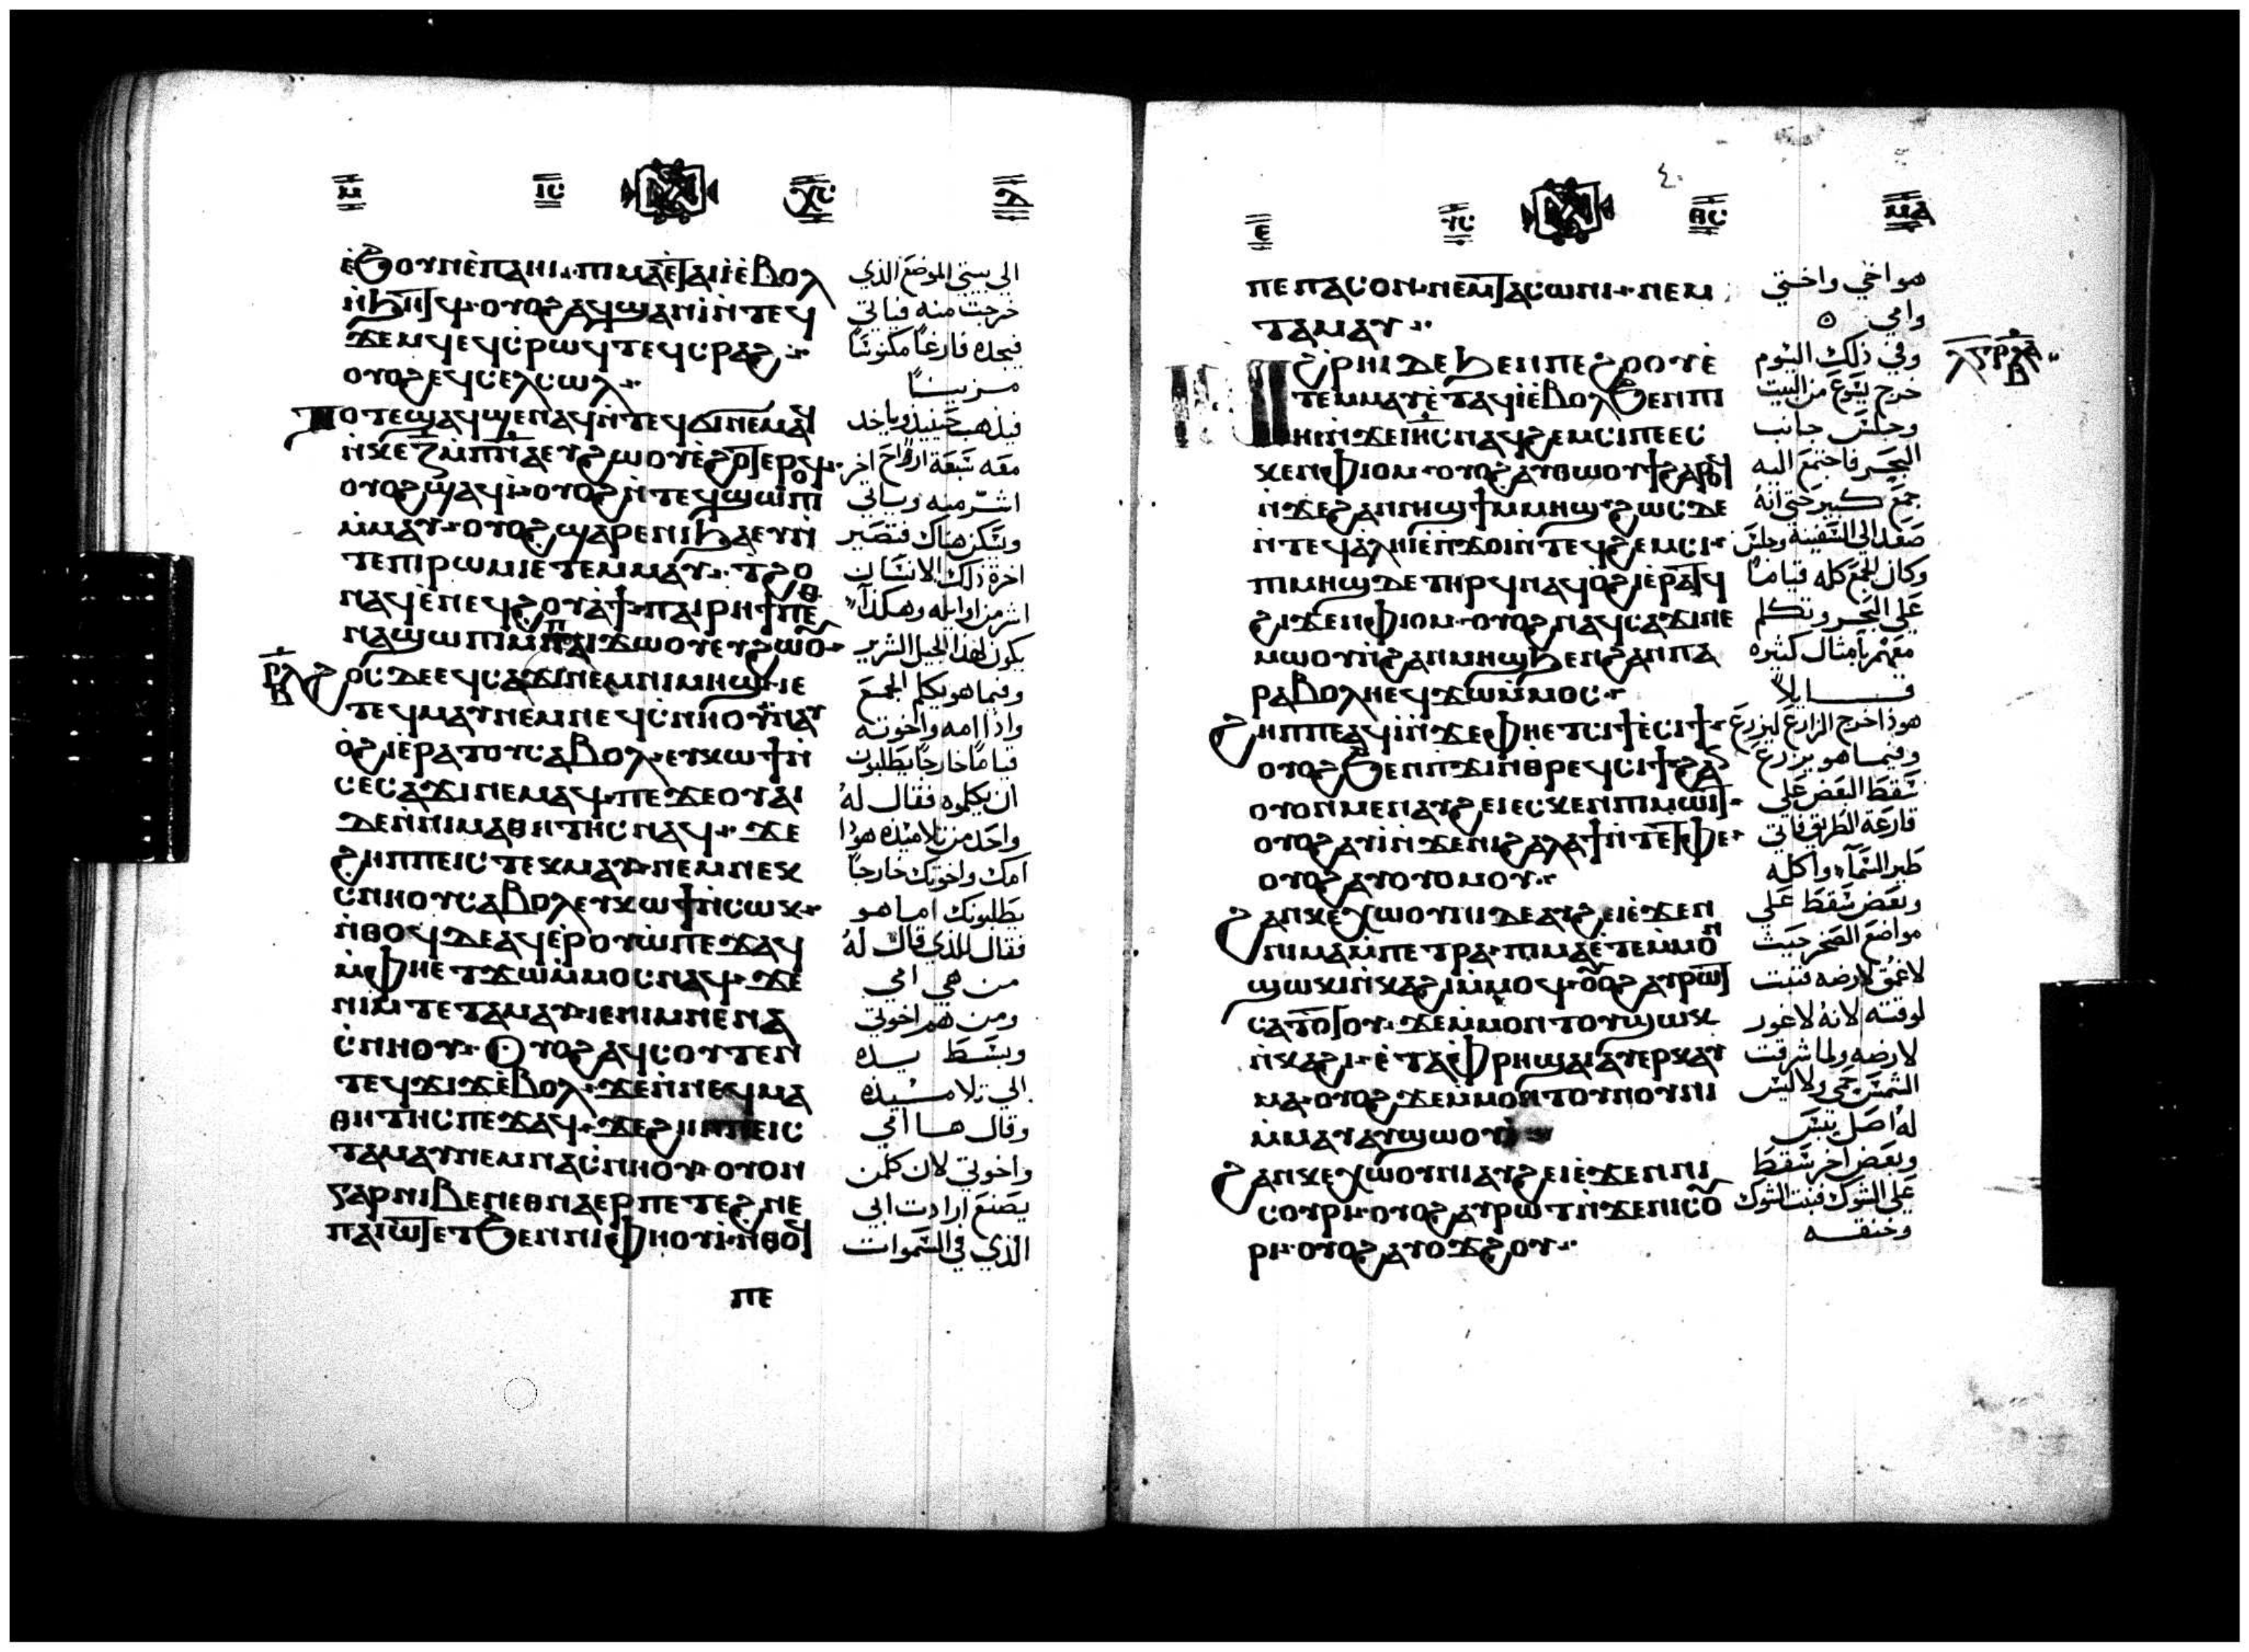 ⲙ ⲓⲥ ⲭⲥ ⲇ
ⲉ̀ϧⲟⲩⲛⲉ̀ⲡⲁⲏⲓ ⲡⲓⲙⲁⲉ̀ⲧⲁⲓⲓ̀ⲉ̀ⲃⲟⲗ
ⲛ̀ϧⲏⲧϥ· ⲟⲩⲟϩⲁϥϣⲁⲛⲓ̀ⲛ̀ⲧⲉϥ
ϫⲉⲙϥⲉϥⲥ̀ⲣⲱϥⲧⲉϥⲥⲣⲁϩ
ⲟⲩⲟϩⲉϥⲥⲉⲗⲥⲱⲗ
ⲧⲟⲧⲉϣⲁϥϣⲉⲛⲁϥⲛ̀ⲧⲉϥϭⲓⲛⲉⲙⲁϥ
ⲛ̀ⲕⲉⲍ̄ⲙ̀ⲡⲛ̄ⲁⲉⲩϩⲱⲟⲩⲉ̀ϩⲟⲧⲉⲣⲟϥ·
ⲟⲩⲟϩϣⲁϥⲓ̀· ⲟⲩⲟϩⲛ̀ⲧⲉϥϣⲱⲡⲓ
ⲙ̀ⲙⲁⲩ· ⲟⲩⲟϩϣⲁⲣⲉⲛⲓϧⲁⲉⲩⲛ̀
ⲧⲉⲡⲓⲣⲱⲙⲓⲉ̀ⲧⲉⲙⲙⲁⲩ· ⲧϩⲟ
ⲛⲁϥⲉ̀ⲛⲉϥϩⲟⲩⲁϯ· ⲡⲁⲓⲣⲏϯⲡⲉⲑ
ⲛⲁϣⲱⲡⲓⲙ̀ⲡⲁⲓϫⲱⲟⲩⲉⲧϩⲱⲟⲩ
ⲣ̄ⲗ̄ⲃ ϩⲟⲥⲇⲉⲉϥⲥⲁϫⲓⲛⲉⲙⲛⲓⲙⲏϣⲓⲉ
ⲧⲉϥⲙⲁⲩⲛⲉⲙⲛⲉϥⲥ̀ⲛⲏⲟⲩⲛⲁⲩ
ⲟ̀ϩⲓⲉ̀ⲣⲁⲧⲟⲩⲥⲁⲃⲟⲗ· ⲉⲩⲕⲱϯⲛ̀
ⲥⲉⲥⲁϫⲓⲛⲉⲙⲁϥ· ⲡⲉϫⲉⲟⲩⲁⲓ
ⲇⲉⲛ̀ⲛⲓⲙⲁⲑⲏⲧⲏⲥⲛⲁϥ· ϫⲉ
ϩⲏⲡⲡⲉⲓⲥⲧⲉⲕⲙⲁⲩ· ⲛⲉⲙⲛⲉⲕ
ⲥⲛⲏⲟⲩⲥⲁⲃⲟⲗⲉⲩⲕⲱϯⲛ̀ⲥⲱⲕ·
ⲛ̀ⲑⲟϥⲇⲉⲁϥⲉ̀ⲣⲟⲩⲱ̀ⲡⲉϫⲁϥ
ⲙ̀ⲫⲏⲉⲧϫⲱⲙ̀ⲙⲟⲥⲛⲁϥ· ϫⲉ
ⲛⲓⲙⲧⲉⲧⲁⲙⲁⲩ· ⲓⲉⲛⲓⲙⲛⲉⲛⲁ
ⲥ̀ⲛⲏⲟⲩ· ⲟⲩⲟϩⲁϥⲥⲟⲩⲧⲉⲛ
ⲧⲉϥϫⲓϫⲉ̀ⲃⲟⲗ· ϫⲉⲛ̀ⲛⲉϥⲙⲁ
ⲑⲏⲧⲏⲥⲡⲉϫⲁϥ· ϫⲉϩⲏⲡⲡⲉⲓⲥ
ⲧⲁⲙⲁⲩⲛⲉⲙⲛⲁⲥ̀ⲛⲏⲟⲩ· ⲟⲩⲟⲛ
ⲅⲁⲣⲛⲓⲃⲉⲛⲉⲑⲛⲁⲉⲣⲡⲉⲧⲉϩⲛⲉ
ⲡⲁⲓⲱⲧⲉⲧϧⲉⲛⲛⲓⲫⲏⲟⲩⲓ̀· ⲛ̀ⲑⲟϥ
ⲡⲉ
الى بيتى الموضع الذي
خرجت منه فياتي
فيجده فارغاً مكنوسًا
مزينًا
فيذهب حينيذ وياخذ
معه سبعة ارواح اخر
اشر منه وياتي
ويسكن هناك فتصير
اخرة ذلك الانسان
اشر من اوايله وهكذا
يكون لهذا الجيل الشرير
وفيما هو يكلم الجمع
واذا امه واخوته
قياماً خارجاً يطلبون
ان يكلموه فقال له
واحد من تلاميذه هوذا
امك واخوتك خارجاً
يطلبونك اما هو
فقال للذي قال له
من هي امي
ومن هم اخوتي
وبسط يده
الى تلاميذه
وقال ها امي
واخوتي لان كل من
يصنع ارادت ابي
الذي في السموات
ⲉ ⲩⲥ ⲑⲥ ٤ ⲙⲁ
ⲡⲉⲡⲁⲥⲟⲛ· ⲛⲉⲙⲧⲁⲥⲱⲛⲓ· ⲛⲉⲙ
ⲧⲁⲙⲁⲩ
ⲛ̀ϩⲣⲏⲓⲇⲉϧⲉⲛⲡⲉϩⲟⲟⲩⲉ̀
ⲧⲉⲙⲙⲁⲩⲉ̀ⲧⲁϥⲓ̀ⲉ̀ⲃⲟⲗϧⲉⲛⲡⲓ
ⲏⲓⲛ̀ϫⲉⲓⲏ̄ⲥⲛⲁϥϩⲉⲙⲥⲓⲡⲉⲉⲥ
ⲕⲉⲛⲫⲓⲟⲙ· ⲟⲩⲟϩⲁⲩⲑⲱⲟⲩϯϩⲁⲣⲟϥ
ⲛ̀ϫⲉϩⲁⲛⲛⲓϣϯⲙⲙⲏϣ· ϩⲱⲥⲇⲉ
ⲛ̀ⲧⲉϥⲁ̀ⲗⲏⲓⲉ̀ⲡϫⲟⲓⲛ̀ⲧⲉϥϩⲉⲙⲥⲓ·
ⲡⲓⲙⲏϣⲇⲉⲧⲏⲣϥⲛⲁϥⲟ̀ϩⲓⲉ̀ⲣⲁⲧϥ
ϩⲓϫⲉⲛⲫⲓⲟⲙ· ⲟⲩⲟϩⲛⲁϥⲥⲁϫⲓⲛⲉ
ⲙⲱⲟⲩⲛ̀ϩⲁⲛⲙⲏϣϧⲉⲛϩⲁⲛⲡⲁ
ⲣⲁⲃⲟⲗⲏⲉϥϫⲱⲙ̀ⲙⲟⲥ·
ϩⲏⲡⲡⲉⲁϥⲓ̀ⲛ̀ϫⲉⲫⲏⲉⲧⲥⲓϯⲉ̀ⲥⲓϯ·
ⲟⲩⲟϩϧⲉⲛⲡϫⲓⲛⲑⲣⲉϥⲥⲓϯϩⲁ
ⲟⲩⲟⲛⲙⲉⲛⲁⲩϩⲉⲓⲉⲥⲕⲉⲛⲡⲓⲙⲱⲓⲧ·
ⲟⲩⲟϩⲁⲩⲓ̀ⲛ̀ϫⲉⲛⲓϩⲁⲗⲁϯⲛ̀ⲧⲉⲧⲫⲉ·
ⲟⲩⲟϩⲁⲩⲟⲩⲟⲙⲟⲩ·
ϩⲁⲛⲕⲉⲭⲱⲟⲩⲛⲓⲇⲉⲁⲩϩⲉⲓⲉ̀ϫⲉⲛ
ⲛⲓⲙⲁⲙ̀ⲡⲉⲧⲣⲁ· ⲡⲓⲙⲁⲉ̀ⲧⲉⲙ̀ⲙⲟⲛ
ϣⲱⲕⲓⲛ̀ⲕⲁϩⲓⲙ̀ⲙⲟϥ· ⲟⲩⲟϩⲁⲩⲣⲱⲧ
ⲥⲁⲧⲟⲧⲟⲩ· ϫⲉⲙ̀ⲙⲟⲛⲧⲟⲩϣⲱⲕ
ⲛ̀ⲕⲁϩⲓ· ⲉ̀ⲧⲁⲫⲣⲏϣⲁⲓⲁⲩⲉⲣⲕⲁⲩ
ⲙⲁ· ⲟⲩⲟϩϫⲉⲙ̀ⲙⲟⲛⲧⲟⲩⲛⲟⲩⲛⲓ
ⲙ̀ⲙⲁⲩⲁⲩϣⲱⲟⲩⲓ̀
ϩⲁⲛⲕⲉⲭⲱⲟⲩⲛⲓⲁⲩϩⲉⲓⲉ̀ϫⲉⲛⲛⲓ
ⲥⲟⲩⲣⲓ· ⲟⲩⲟϩⲁⲩⲣⲱⲧⲛ̀ϫⲉⲛⲓⲥⲟⲩ
ⲣⲓ· ⲟⲩⲟϩⲁⲩⲟϫϩⲟⲩ
هو اخي واختي
وامي
وفي ذلك اليوم
خرج يسوع من البيت
وجلس جانب
البحر فاجتمع اليه
جمع كبير حتى انه
صعد الى السفينة وجلس
وكان الجمع كله قياماً
على البحر وتكلم
معهم بامثال كثيره
قايلاً
هوذا خرج الزارع ليزرع
وفيما هو يزرع
سقط البعض على
قارعة الطريق فاتى
طير السمآء واكله
وبعض سقط على
مواضع الصخر حيث
لا عمق لارضه فنبت
لوقته لانه لا غور
لارضه ولما شرقت
الشمس حمي ولا ليس
له اصل يبس
وبعض اخر سقط
على الشوك فنبت الشوك
وخنقه